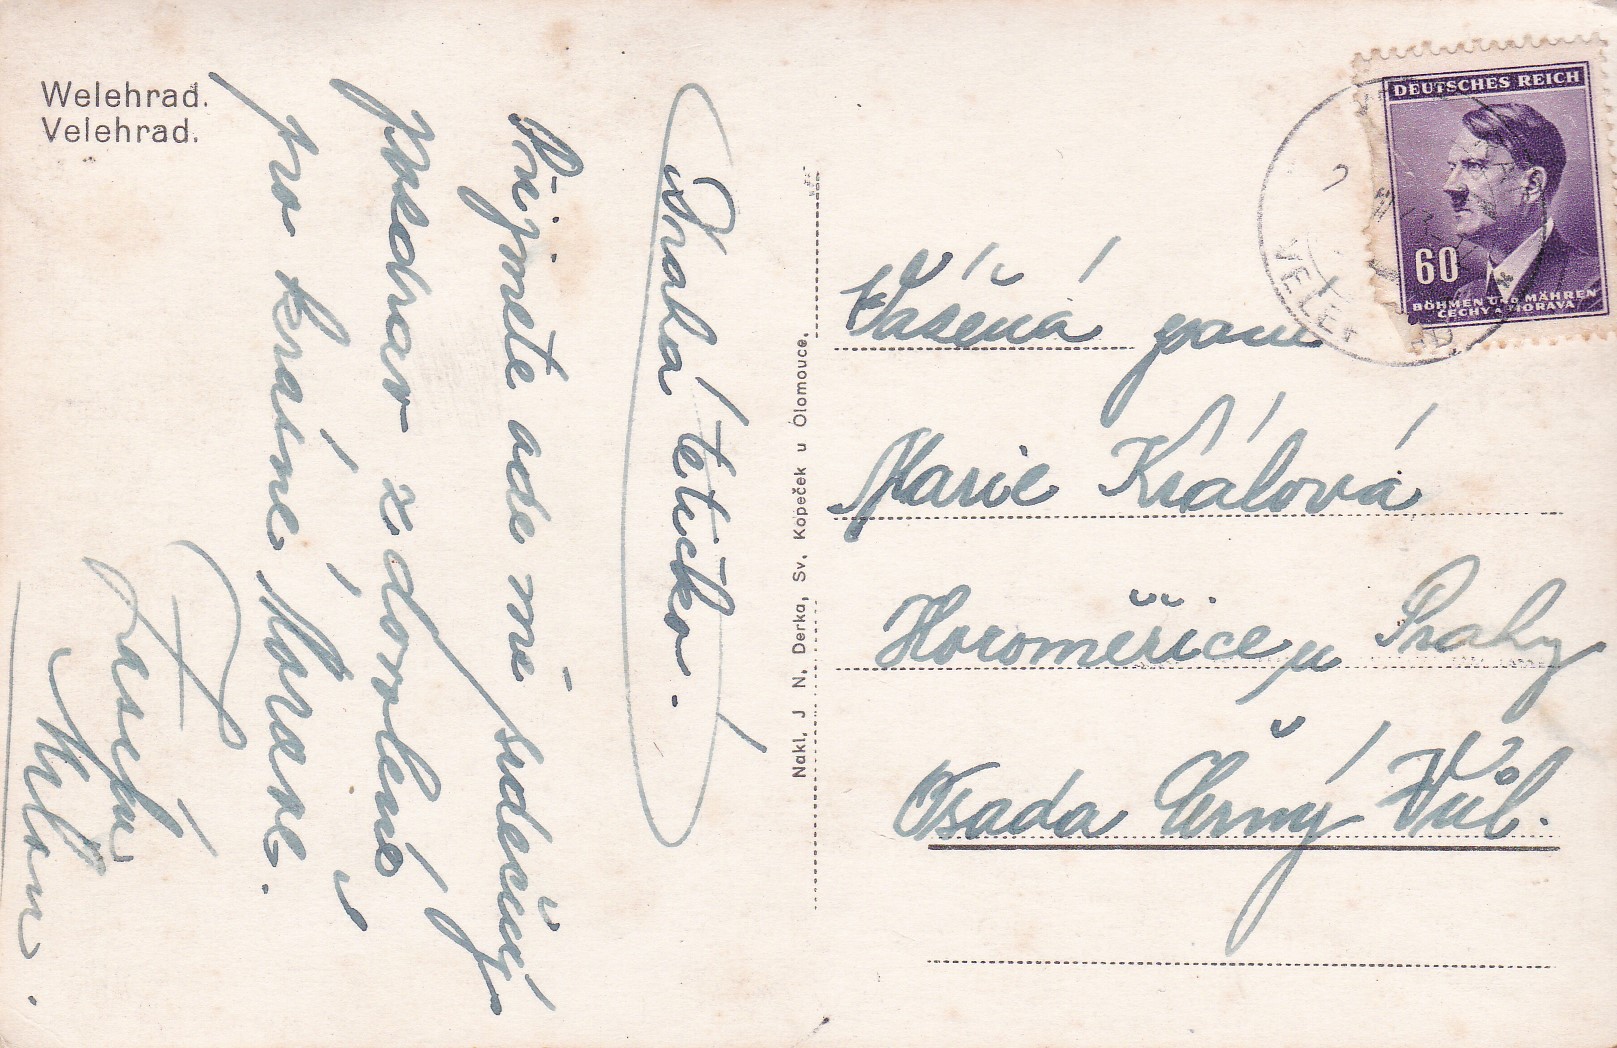 Welehrad.
Velehrad.
Drahá tetičko.
Přijměte ode mě srdečný
pozdrav z dovolené
po krásné Moravě.
Milan.
Nakl. J N. Derka, Sv. Kopeček u Olomouce.
DEUTSCHES REICH
60
BÖHMEN UND MÄHREN
ČECHY A MORAVA
Vážená paní
Marie Králová
Horoměřice u Prahy
Osada Černý Vůl.